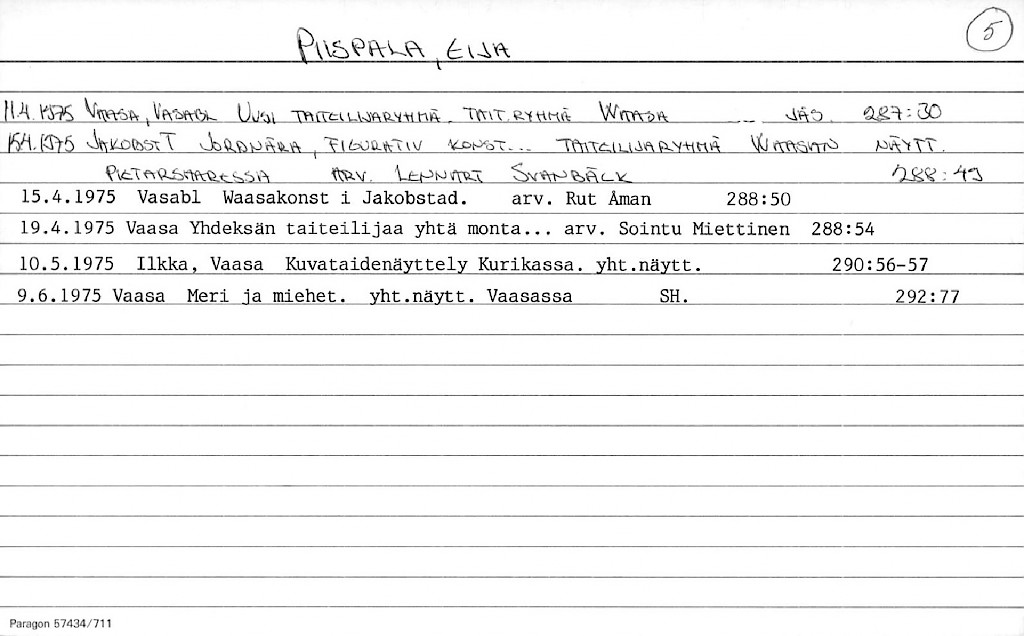 5
PIISPALA, EIJA
11.4.1975 VAASA, VASABL UUSI TAITEILIJARYHMÄ. TAIT.RYHMÄ WAASA ... JÄS. 287:30
15.4.1975 JAKOBST T JORDNÄRA, FIGURATIV KONST... TAITEILIJARYHMÄ WAASAN NÄYTT.
PIETARSAARESSA ARV. LENNART SVANBÄCK 288:49
15.4.1975 Vasabl Waasakonst i Jakobstad. arv. Rut Åman 288:50
19.4.1975 Vaasa Yhdeksän taiteilijaa yhtä monta... arv. Sointu Miettinen 288:54
10.5.1975 Ilkka, Vaasa Kuvataidenäyttely Kurikassa. yht.näytt. 290:56-57
9.6.1975 Vaasa Meri ja miehet. yht.näytt. Vaasassa SH. 292:77
Paragon 57434/711